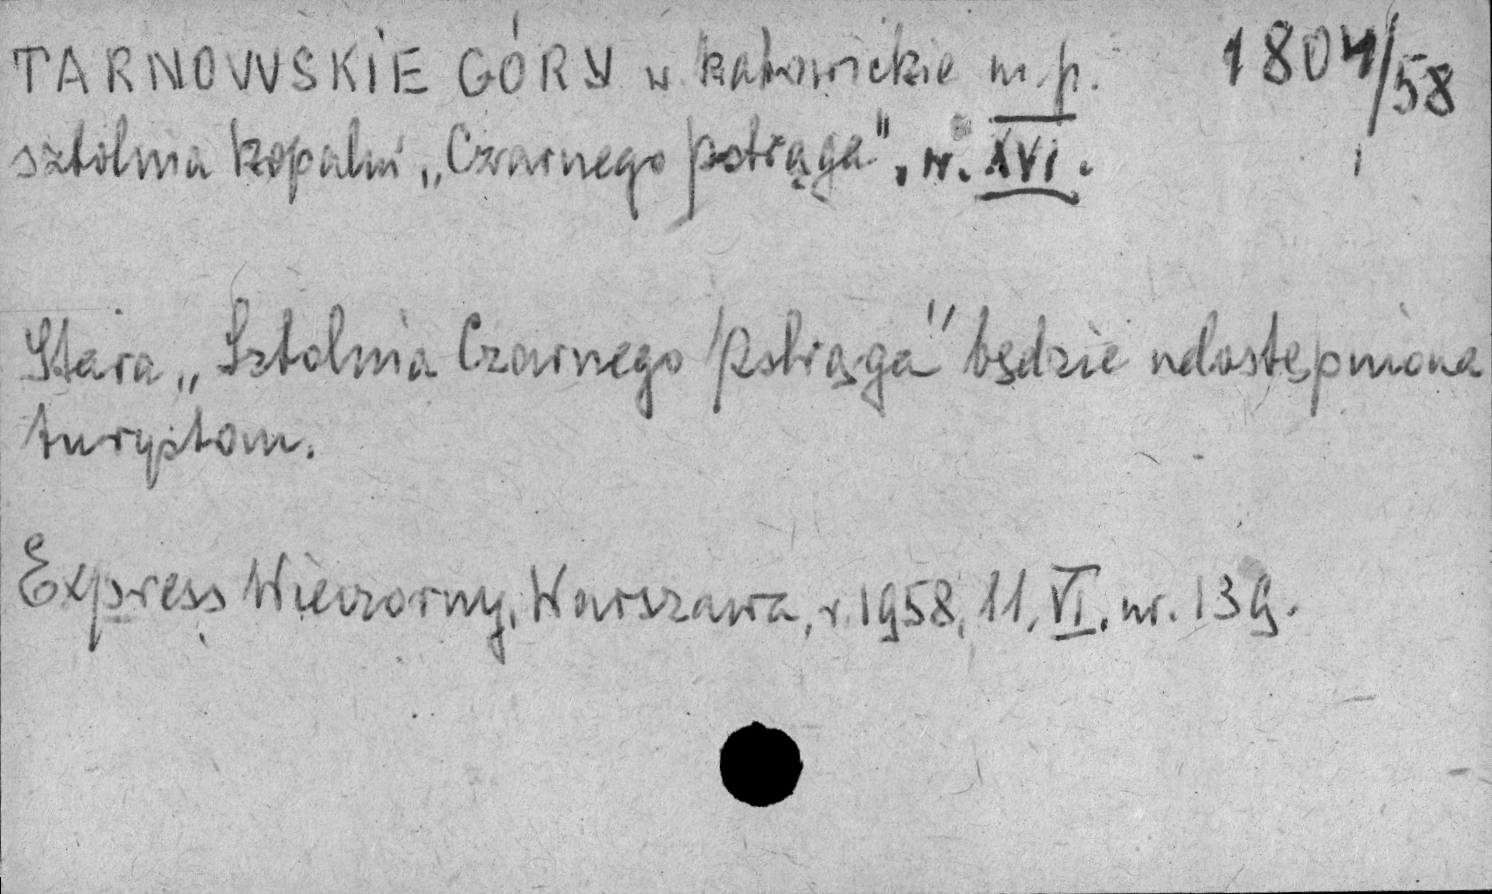 TARNOWSKIE GÓRY w. katowickie m. p. 1804/58
sztolnia kopalni „Czarnego pstrąga", w. XVI.
Stara „Sztolnia Czarnego Pstrąga" będzie udostępniona
turystom.
Express Wieczorny, Warszawa, r. 1958, 11. VI. nr. 139.